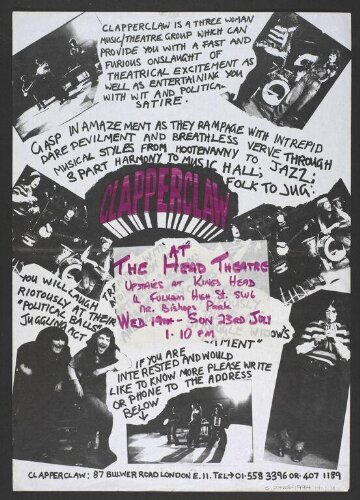 CLAPPERCLAW IS A THREE WOMAN
MUSIC/THEATRE GROUP WHICH CAN
PROVIDE YOU WITH A FAST AND
FURIOUS ONSLAUGHT OF
THEATRICAL EXCITEMENT AS
WELL AS ENTERTAINING YOU
WITH WIT AND POLITICAL
SATIRE.
GASP IN AMAZEMENT AS THEY RAMPAGE WITH INTREPID
DARE DEVILMENT AND BREATHLESS VERVE THROUGH
MUSICAL STYLES FROM HOOTENANNY TO JAZZ;
3 PART HARMONY TO MUSIC HALL;
FOLK TO JUG.
CLAPPERCLAW
AT
THE HEAD THEATRE
UPSTAIRS AT KINGS HEAD
4 FULHAM HIGH ST. SW6
NR. BISHOPS PARK
WED. 19TH - SUN 23RD JULY
1.10 PM
YOU WILL LAUGH
RIOTOUSLY AT THEIR
"POLITICAL BALLS"
JUGGLING ACT
MENT"
IF YOU ARE
INTERESTED AND WOULD
LIKE TO KNOW MORE PLEASE WRITE
OR PHONE TO THE ADDRESS
BELOW
CLAPPERCLAW: 87 BULWER ROAD LONDON E.11. TEL→01·558 3396 OR· 407 1189